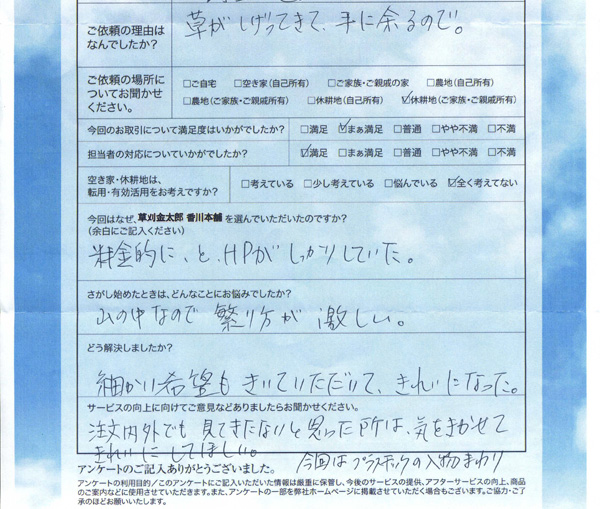 ご依頼の理由は
なんでしたか?
草がしげってきて、手に余るので。
ご依頼の場所に
ついてお聞かせ
ください。
□ご自宅 □空き家(自己所有) □ご家族・ご親戚の家 □農地(自己所有)
□農地(ご家族・ご親戚所有) □休耕地(自己所有) ☑休耕地(ご家族・ご親戚所有)
今回のお取引について満足度はいかがでしたか? □満足 ☑まぁ満足 □普通 □やや不満 □不満
担当者の対応についていかがでしたか? ☑満足 □まぁ満足 □普通 □やや不満 □不満
空き家・休耕地は、
転用・有効活用をお考えですか?
□考えている □少し考えている □悩んでいる ☑全く考えてない
今回はなぜ、草刈金太郎 香川本舗 を選んでいただいたのですか?
(余白にご記入ください)
料金的に、と、HPがしっかりしていた。
さがし始めたときは、どんなことにお悩みでしたか?
山の中なので繁り方が激しい。
どう解決しましたか?
細かい希望もきいていただいて、きれいになった。
サービスの向上に向けてご意見などありましたらお聞かせください。
注文内外でも見てきたないと思った所は、気をきかせて
きれいにしてほしい。
今回はプラスチックの入物まわり
アンケートのご記入ありがとうございました。
アンケートの利用目的/このアンケートにご記入いただいた情報は厳重に保管し、今後のサービスの提供、アフターサービスの向上、商品
のご案内などに使用させていただきます。また、アンケートの一部を弊社ホームページに掲載させていただく場合もございます。ご協力・ご了
承のほどお願いいたします。